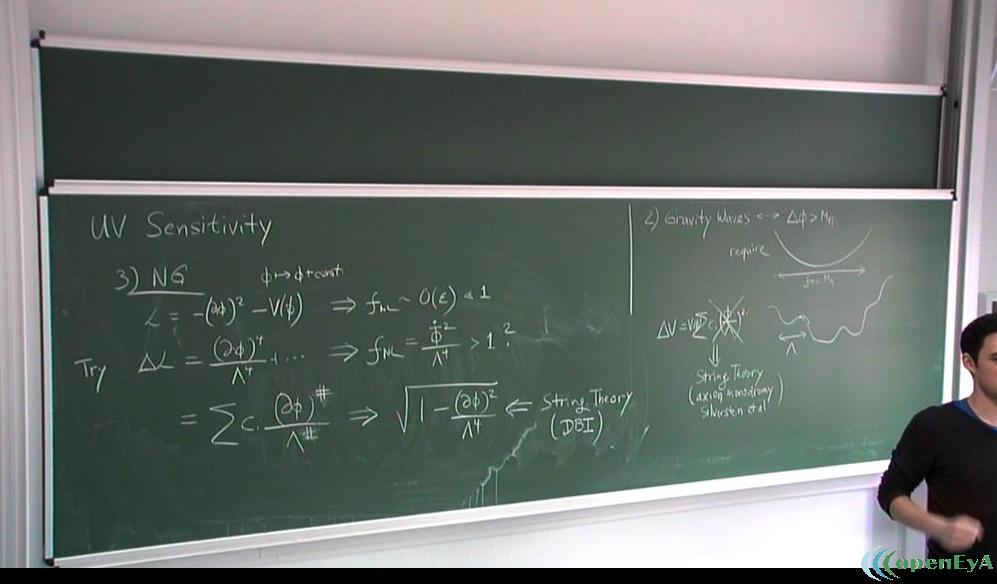 UV Sensitivity
3) NG φ ↦ φ + const
ℒ = -(∂φ)² - V(φ) ⇒ f_NL ~ O(ε) < 1
Try Δℒ = (∂φ)⁴/Λ⁴ + ... ⇒ f_NL = φ̇²/Λ⁴ > 1 ?
= Σ cᵢ (∂φ)^#/Λ^# ⇒ √(1 - (∂φ)²/Λ⁴) ⇐ String Theory
(DBI)
2) Gravity Waves ↔ Δφ > M_Pl
require
ΔV =
Λ
⇓
String Theory
(axion monodromy
Silverstein et al)
openEyA